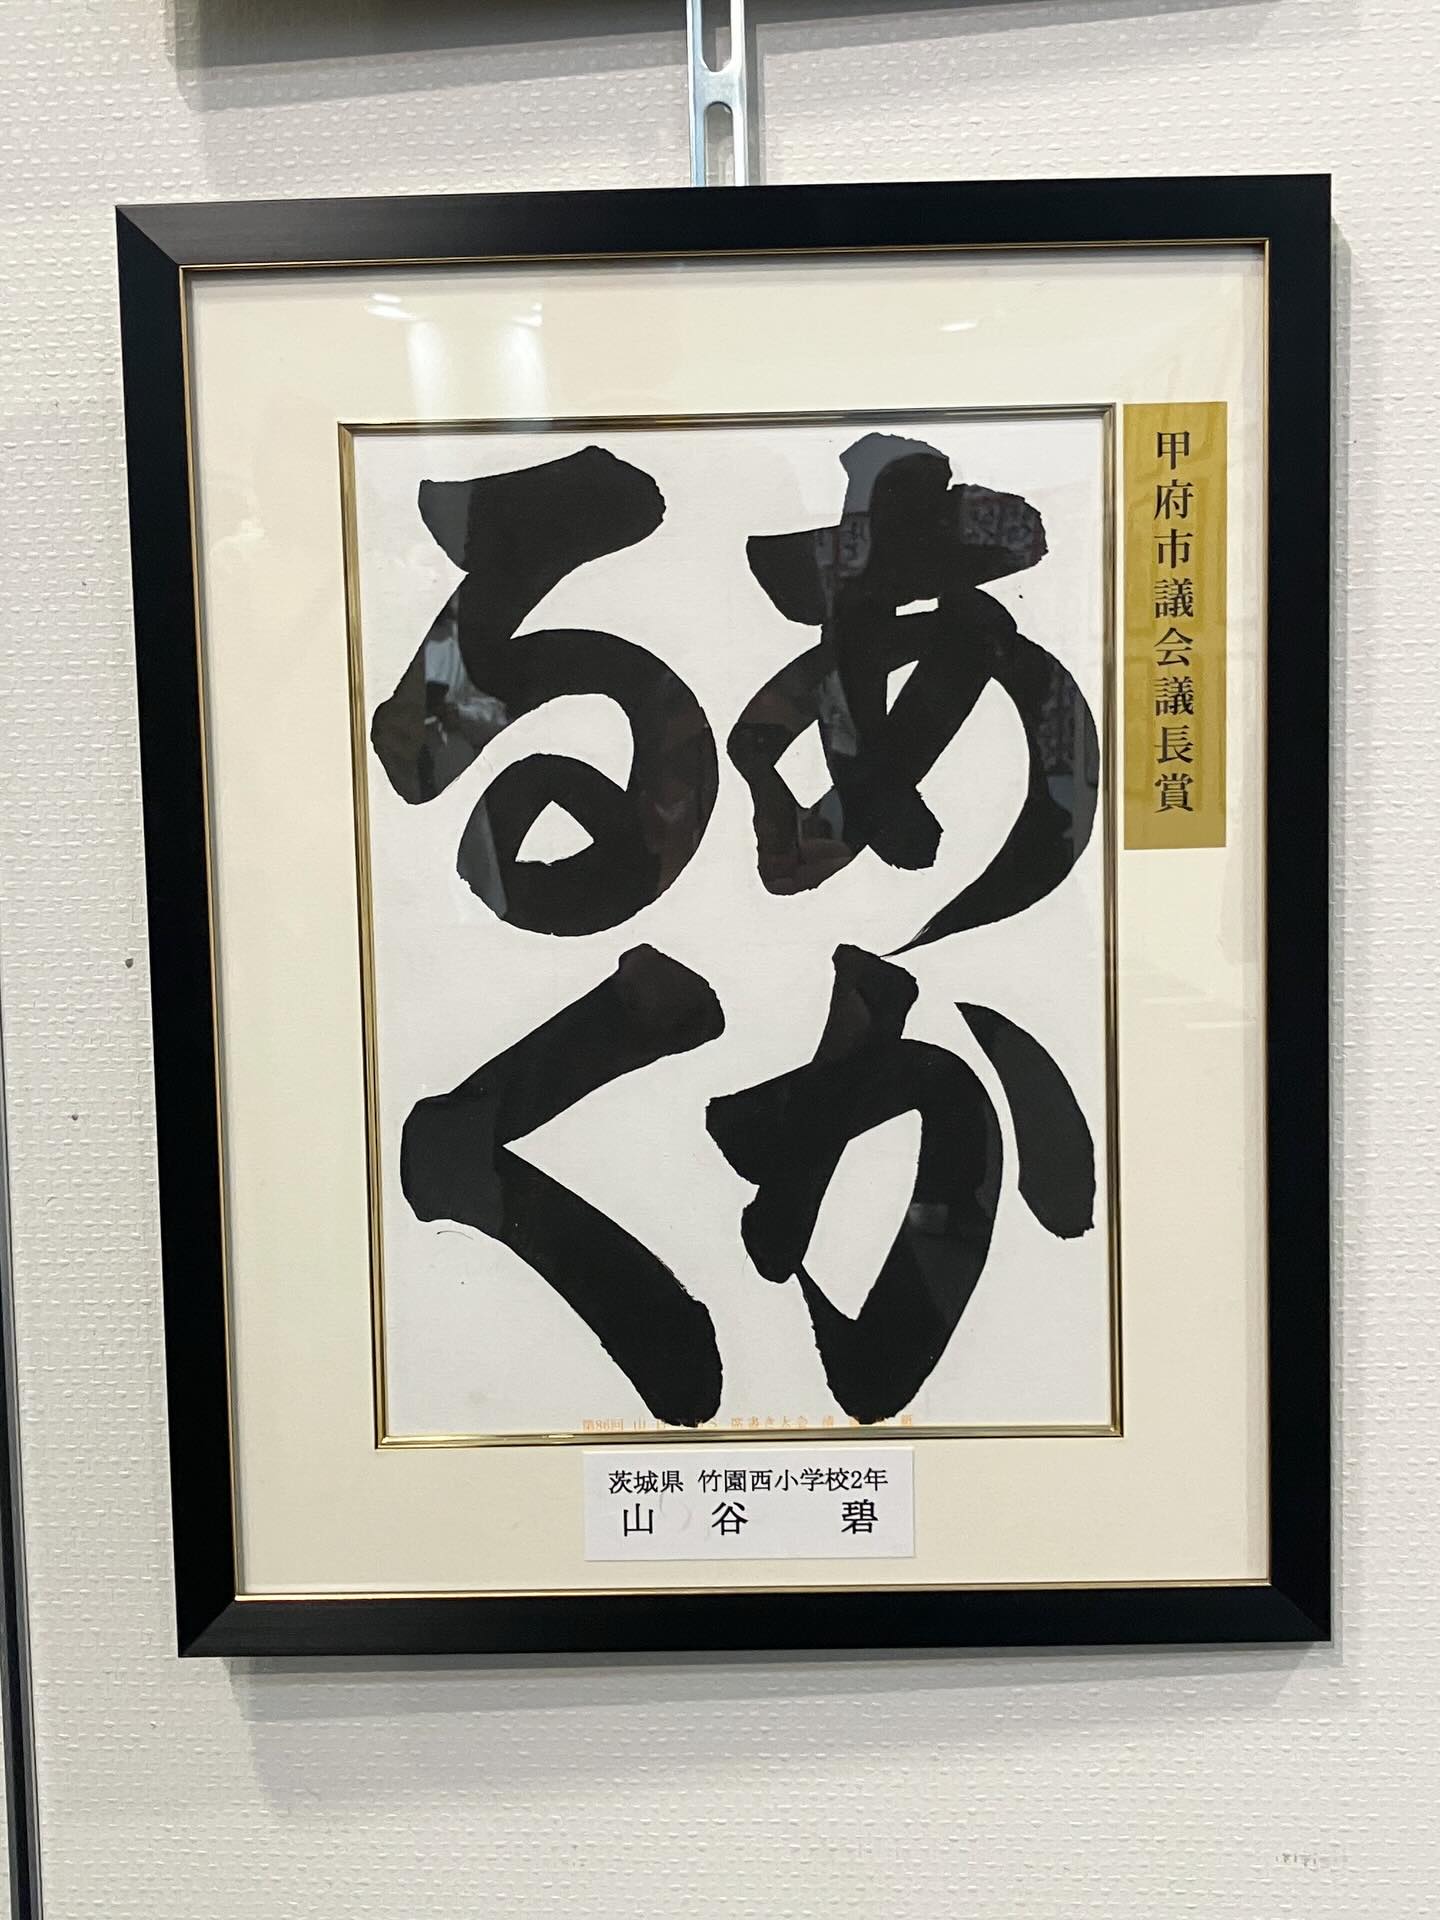 甲府市議会議長賞
あか
るく
第86回 山
席書き大会
茨城県 竹園西小学校2年
山谷 碧